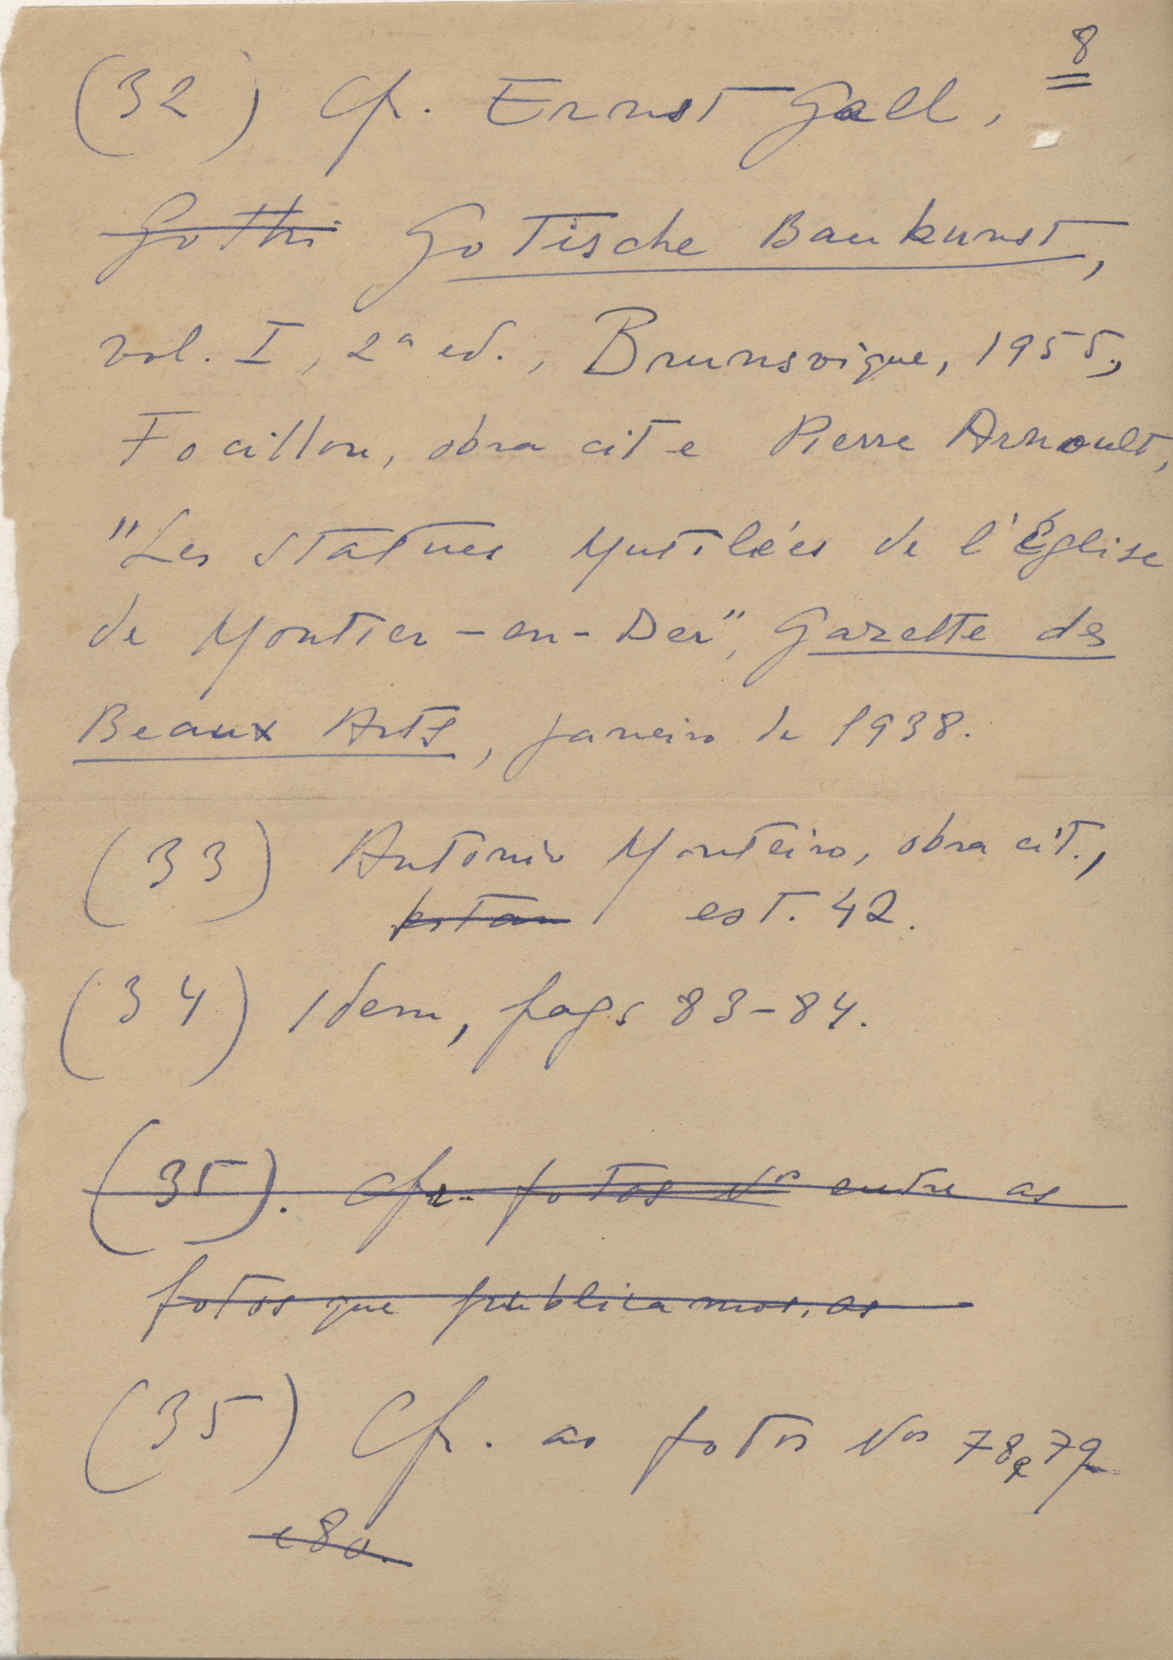 8
(32) Cfr. Ernst Gall,
Gothi Gotische Baukunst,
vol. I, 2ª ed., Brunsvique, 1955,
Focillon, obra cit e Pierre Arnoult,
"Les statues mutilées de l'Église
de Montier-en-Der", Gazette des
Beaux Arts, janeiro de 1938.
(33) Antonio Monteiro, obra cit.,
estam est. 42.
(34) Idem, pags 83-84.
(35). Cfr. fotos Nos entre as
fotos que publicamos, as
(35) Cfr. as fotos Nos 78 e 79
e 80.